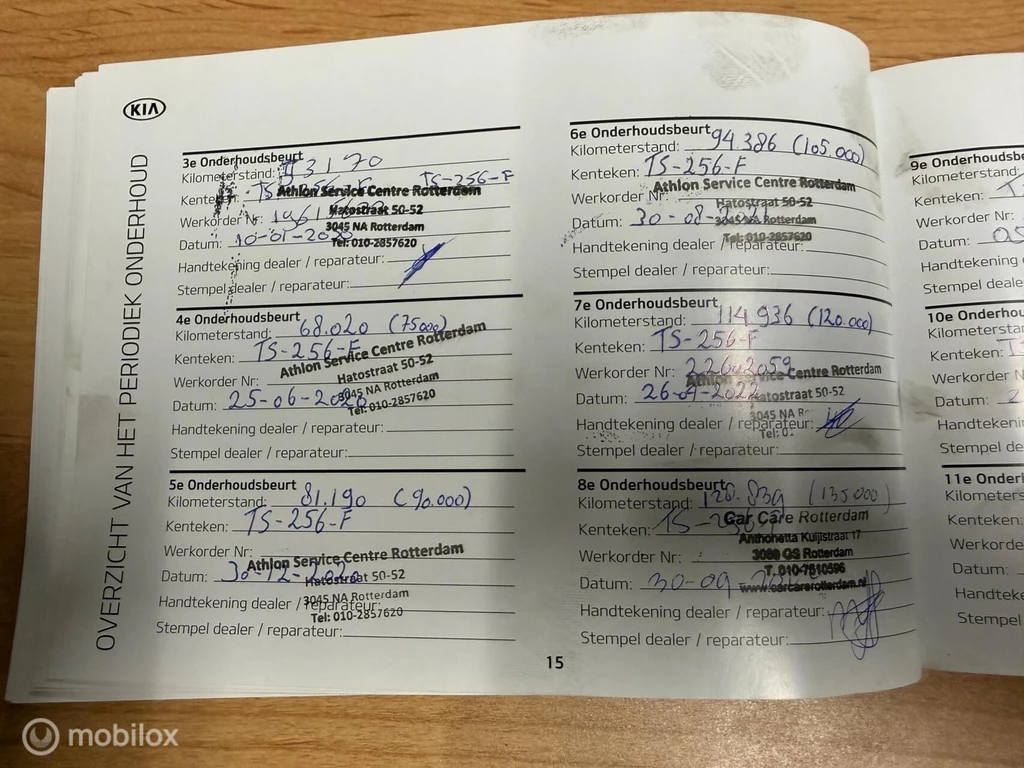 KIA
OVERZICHT VAN HET PERIODIEK ONDERHOUD
3e Onderhoudsbeurt
Kilometerstand: 53170
Kenteken: TS-256-F
Athlon Service Centre Rotterdam
Werkorder Nr:
Hatostraat 50-52
3045 NA Rotterdam
Datum: 10-01-2020
Tel: 010-2857620
Handtekening dealer / reparateur:
Stempel dealer / reparateur:
4e Onderhoudsbeurt
Kilometerstand: 68.020 (75000)
Kenteken: TS-256-F
Athlon Service Centre Rotterdam
Werkorder Nr:
Hatostraat 50-52
Datum: 25-06-2020
3045 NA Rotterdam
Tel: 010-2857620
Handtekening dealer / reparateur:
Stempel dealer / reparateur:
5e Onderhoudsbeurt
Kilometerstand: 81.190 (90.000)
Kenteken: TS-256-F
Werkorder Nr:
Athlon Service Centre Rotterdam
Datum: 30-12-2020
Hatostraat 50-52
3045 NA Rotterdam
Handtekening dealer / reparateur:
Tel: 010-2857620
Stempel dealer / reparateur:
6e Onderhoudsbeurt
Kilometerstand: 94.386 (105.000)
Kenteken: TS-256-F
Athlon Service Centre Rotterdam
Werkorder Nr:
Hatostraat 50-52
Datum: 30-08-
3045 NA Rotterdam
Tel: 010-2857620
Handtekening dealer / reparateur:
Stempel dealer / reparateur:
7e Onderhoudsbeurt
Kilometerstand: 114936 (120.000)
Kenteken: TS-256-F
Werkorder Nr:
Athlon Service Centre Rotterdam
Datum: 26-04-2022
Hatostraat 50-52
3045 NA
Handtekening dealer / reparateur:
Tel:
Stempel dealer / reparateur:
8e Onderhoudsbeurt
Kilometerstand: 128.839 (135000)
Kenteken: TS-256-F
Car Care Rotterdam
Anthonetta Kuijlstraat 17
Werkorder Nr:
3066 GS Rotterdam
T. 010-7510596
Datum: 30-09
www.carcarerotterdam.nl
Handtekening dealer / reparateur:
Stempel dealer / reparateur:
15
9e Onderhoudsb
Kilometerstan
Kenteken:
Werkorder
Datum:
Handtekeni
Stempel deale
10e Onderhou
Kilometersta
Kenteken:
Werkorder
Datum:
Handtekenin
Stempel de
11e Onderh
Kilometers
Kenteken:
Werkorde
Datum:
Handteke
Stempel
mobilox